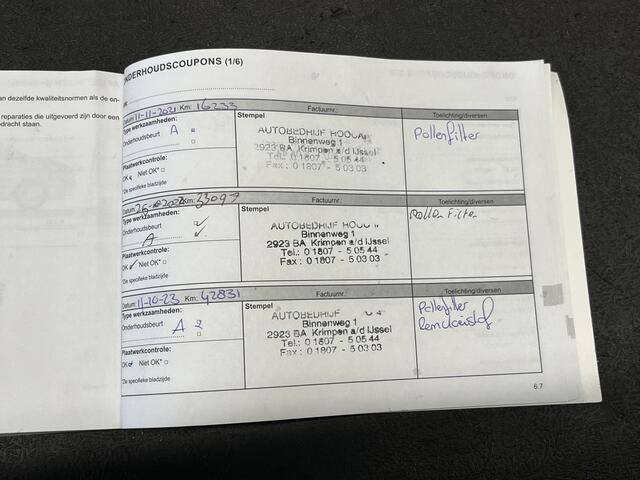 an dezelfde kwaliteitsnormen als de on-
reparaties die uitgevoerd zijn door een
dracht staan.
ONDERHOUDSCOUPONS (1/6)
Datum: 11-11-2021 Km: 16233
Factuurnr.:
Type werkzaamheden:
Onderhoudsbeurt A
Plaatwerkcontrole:
OK Niet OK*
*Zie specifieke bladzijde
Stempel
AUTOBEDRIJF
Binnenweg 1
2923 BA Krimpen a/d IJssel
Tel.: 0 1807 - 5 05 44
Fax : 0 1807 - 5 03 03
Toelichting/diversen
Pollenfilter
Km: 33097
Factuurnr.:
Type werkzaamheden:
Onderhoudsbeurt
A
Plaatwerkcontrole:
OK Niet OK*
*Zie specifieke bladzijde
Stempel
AUTOBEDRIJF
Binnenweg 1
2923 BA Krimpen a/d IJssel
Tel.: 0 1807 - 5 05 44
Fax : 0 1807 - 5 03 03
Toelichting/diversen
Pollen Filter
Datum: 11-10-23 Km: 42831
Factuurnr.:
Type werkzaamheden:
Onderhoudsbeurt A
Plaatwerkcontrole:
OK Niet OK*
*Zie specifieke bladzijde
Stempel
AUTOBEDRIJF
Binnenweg 1
2923 BA Krimpen a/d IJssel
Tel.: 0 1807 - 5 05 44
Fax : 0 1807 - 5 03 03
Toelichting/diversen
Pollenfilter
Remvloeistof
6.7